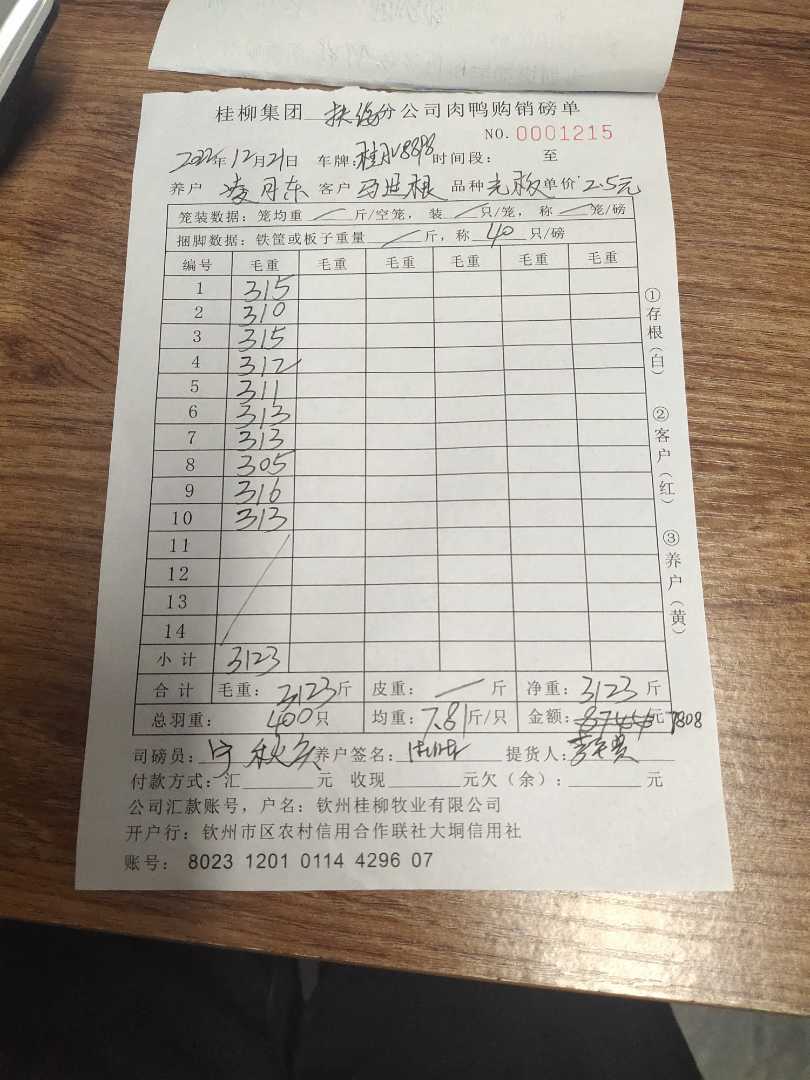 桂柳集团 扶绥 分公司肉鸭购销磅单
NO.0001215
2022年12月21日 车牌: 时间段: 至
养户 凌月东 客户 马进根 品种 单价 2.5元
笼装数据: 笼均重 / 斤/空笼, 装 / 只/笼, 称 / 笼/磅
捆脚数据: 铁筐或板子重量 / 斤, 称 40 只/磅
编号 毛重 毛重 毛重 毛重 毛重 毛重
1 315
2 310
3 315
4 312
5 311
6 313
7 313
8 305
9 316
10 313
11
12
13
14
小计 3123
合计 毛重: 3123斤 皮重: / 斤 净重: 3123 斤
总羽重: 400只 均重: 7.81斤/只 金额: 元 7808
司磅员: 养户签名: 提货人:
付款方式: 汇 元 收现 元欠(余): 元
公司汇款账号, 户名: 钦州桂柳牧业有限公司
开户行: 钦州市区农村信用合作联社大垌信用社
账号: 8023 1201 0114 4296 07
①存根(白) ②客户(红) ③养户(黄)